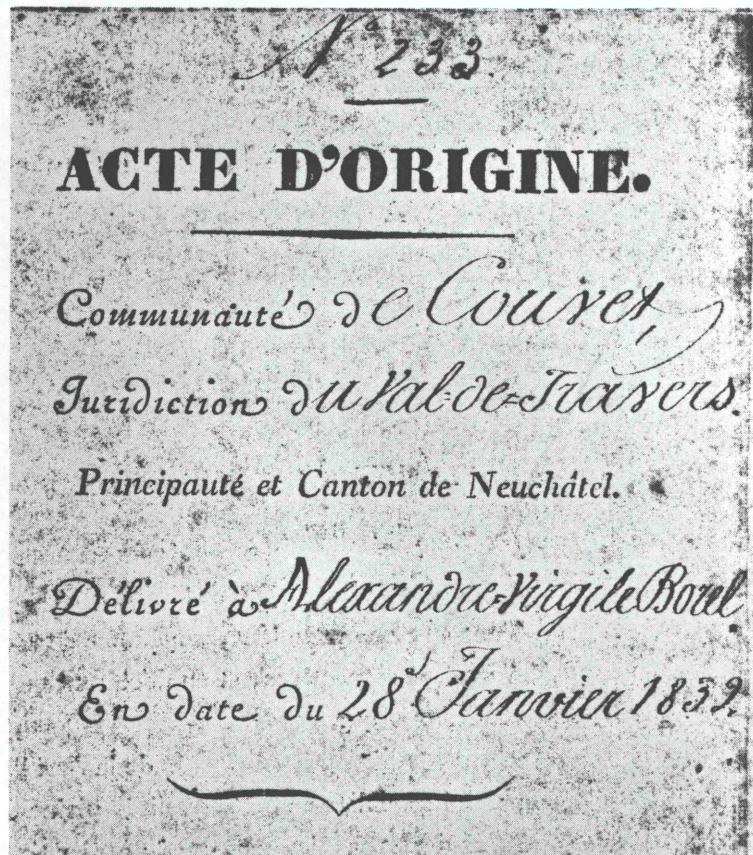 N° 233
ACTE D'ORIGINE.
Communauté de Couvet,
Juridiction du Val-de-Travers.
Principauté et Canton de Neuchâtel.
Délivré à Alexandre-Virgile Borel
En date du 28 Janvier 1832